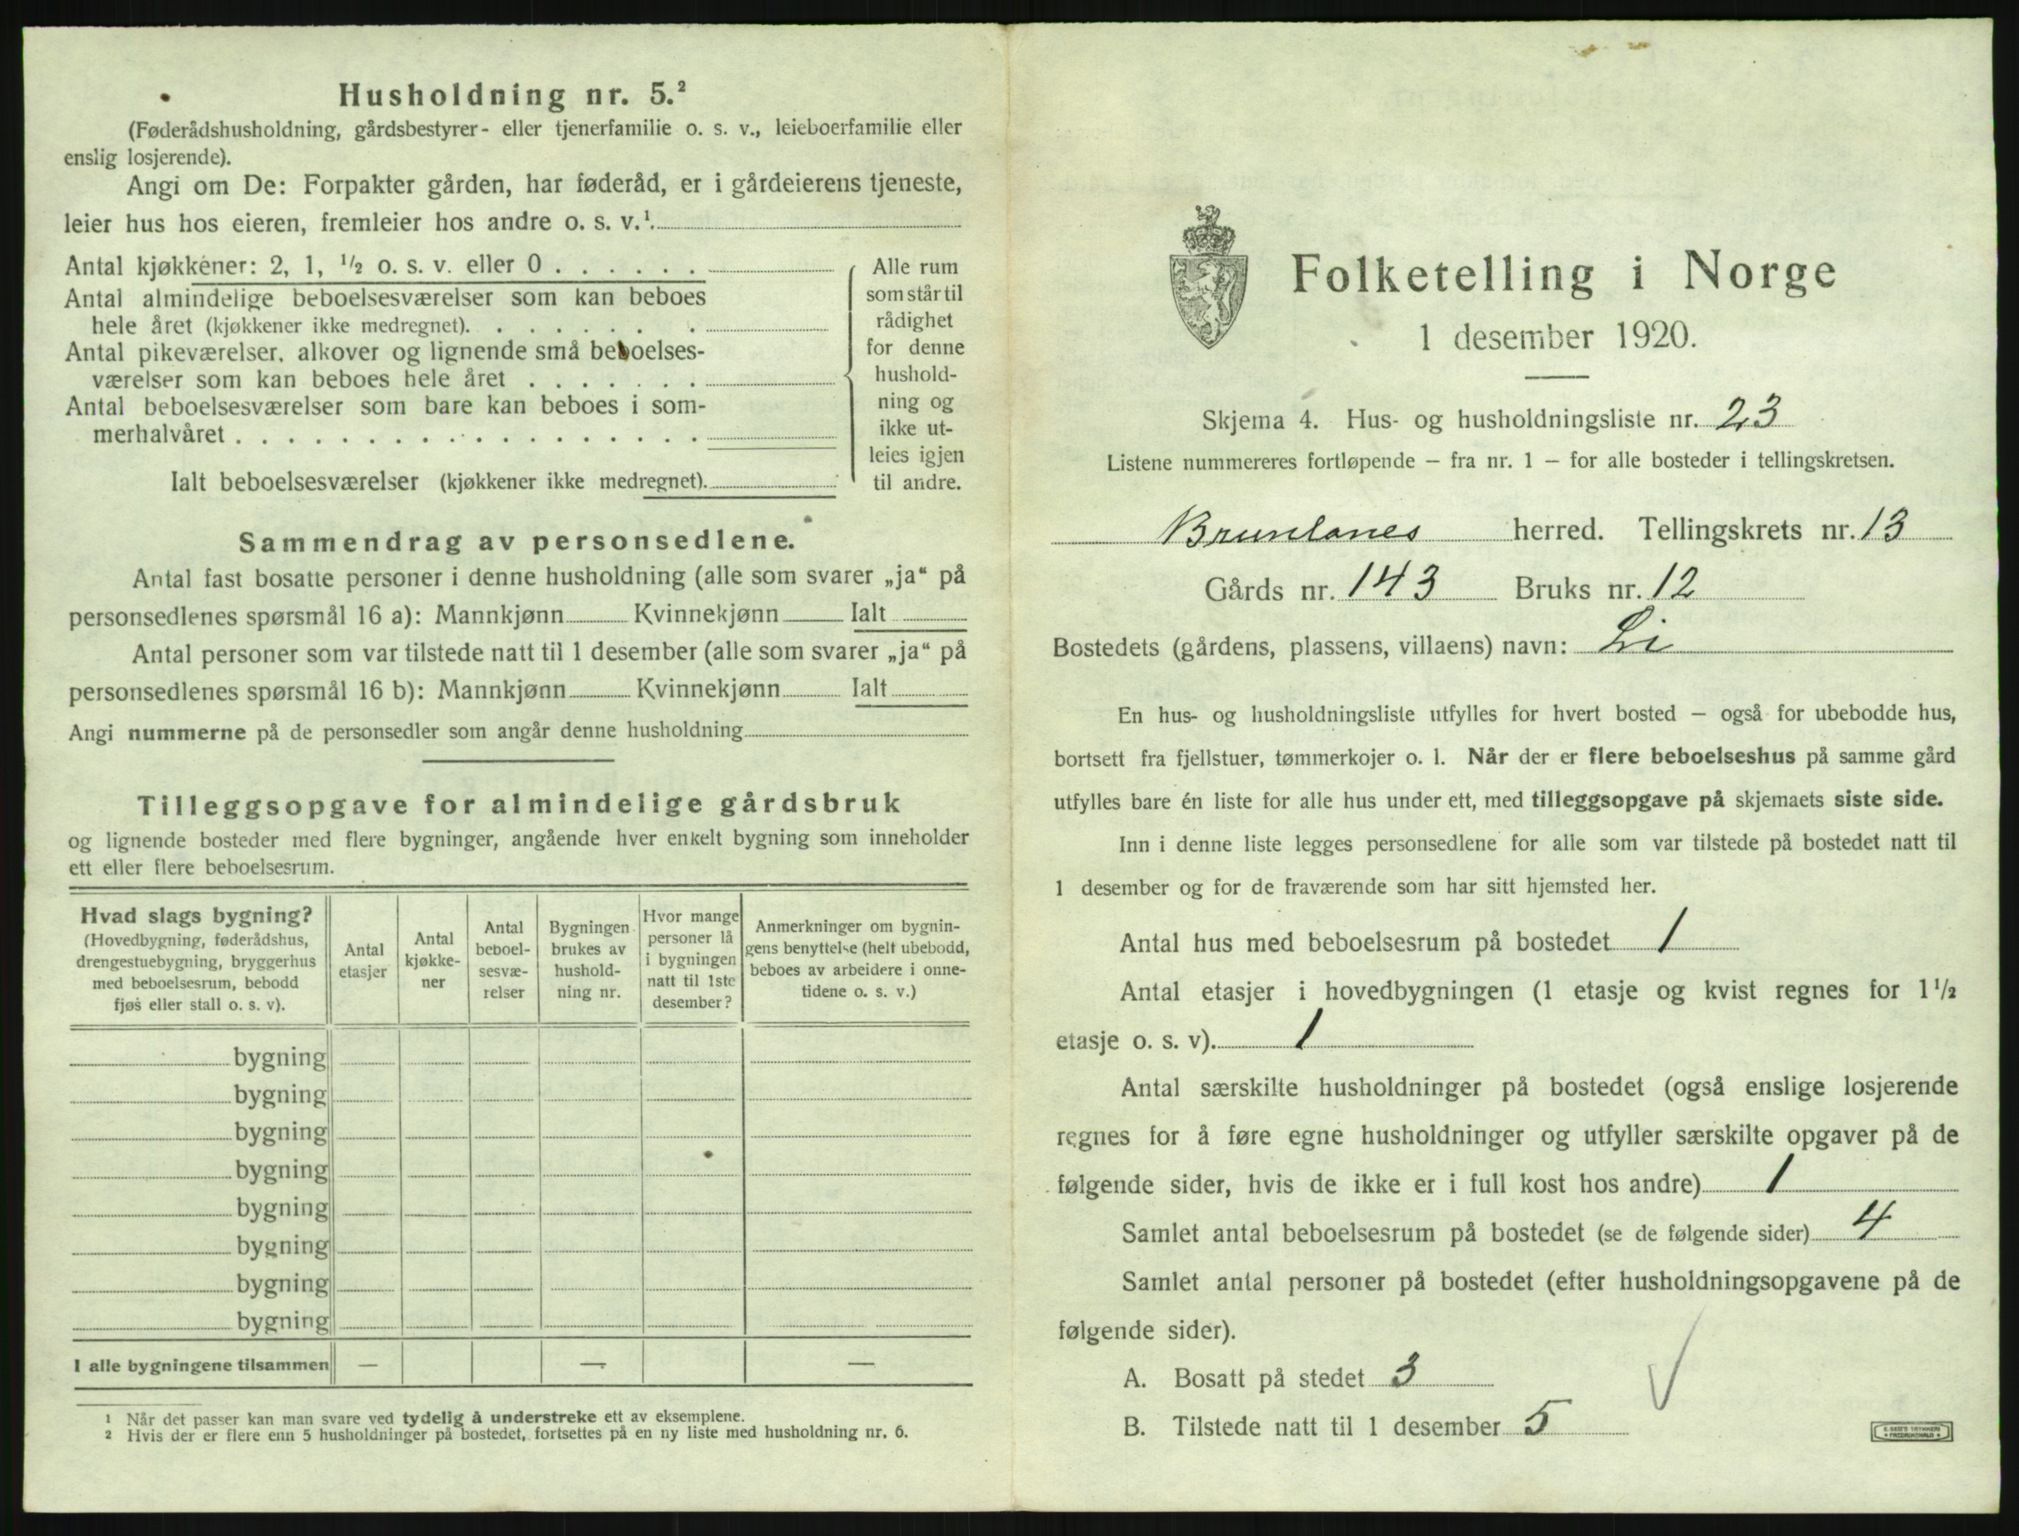 Husholdning nr. 5.²
(Føderådshusholdning, gårdsbestyrer- eller tjenerfamilie o. s. v., leieboerfamilie eller
enslig losjerende).
Angi om De: Forpakter gården, har føderåd, er i gårdeierens tjeneste,
leier hus hos eieren, fremleier hos andre o. s. v.¹.
Antal kjøkkener: 2, 1, ½ o. s. v. eller 0 . . . . . .
Antal almindelige beboelsesværelser som kan beboes
hele året (kjøkkener ikke medregnet). . . . . . . .
Antal pikeværelser, alkover og lignende små beboelses-
værelser som kan beboes hele året . . . . . . .
Antal beboelsesværelser som bare kan beboes i som-
merhalvåret . . . . . . . . . . . . . . . . . .
Ialt beboelsesværelser (kjøkkener ikke medregnet).
Alle rum
som står til
rådighet
for denne
hushold-
ning og
ikke ut-
leies igjen
til andre.
Sammendrag av personsedlene.
Antal fast bosatte personer i denne husholdning (alle som svarer „ja“ på
personsedlenes spørsmål 16 a): Mannkjønn Kvinnekjønn Ialt
Antal personer som var tilstede natt til 1 desember (alle som svarer „ja“ på
personsedlenes spørsmål 16 b): Mannkjønn Kvinnekjønn Ialt
Angi nummerne på de personsedler som angår denne husholdning
Tilleggsopgave for almindelige gårdsbruk
og lignende bosteder med flere bygninger, angående hver enkelt bygning som inneholder
ett eller flere beboelsesrum.
Hvad slags bygning?
(Hovedbygning, føderådshus,
drengestuebygning, bryggerhus
med beboelsesrum, bebodd
fjøs eller stall o. s. v).
Antal
etasjer
Antal
kjøkke-
ner
Antal
beboel-
sesvæ-
relser
Bygningen
brukes av
hushold-
ning nr.
Hvor mange
personer lå
i bygningen
natt til 1ste
desember?
Anmerkninger om bygnin-
gens benyttelse (helt ubebodd,
beboes av arbeidere i onne-
tidene o. s. v.)
bygning
bygning
bygning
bygning
bygning
bygning
bygning
bygning
I alle bygningene tilsammen — — —
¹ Når det passer kan man svare ved tydelig å understreke ett av eksemplene.
² Hvis der er flere enn 5 husholdninger på bostedet, fortsettes på en ny liste med husholdning nr. 6.
Folketelling i Norge
1 desember 1920.
Skjema 4. Hus- og husholdningsliste nr. 23
Listene nummereres fortløpende – fra nr. 1 – for alle bosteder i tellingskretsen.
Brunlanes herred. Tellingskrets nr. 13
Gårds nr. 143 Bruks nr. 12
Bostedets (gårdens, plassens, villaens) navn: Li
En hus- og husholdningsliste utfylles for hvert bosted – også for ubebodde hus,
bortsett fra fjellstuer, tømmerkojer o. l. Når der er flere beboelseshus på samme gård
utfylles bare én liste for alle hus under ett, med tilleggsopgave på skjemaets siste side.
Inn i denne liste legges personsedlene for alle som var tilstede på bostedet natt til
1 desember og for de fraværende som har sitt hjemsted her.
Antal hus med beboelsesrum på bostedet 1
Antal etasjer i hovedbygningen (1 etasje og kvist regnes for 1½
etasje o. s. v). 1
Antal særskilte husholdninger på bostedet (også enslige losjerende
regnes for å føre egne husholdninger og utfyller særskilte opgaver på de
følgende sider, hvis de ikke er i full kost hos andre) 1
Samlet antal beboelsesrum på bostedet (se de følgende sider) 4
Samlet antal personer på bostedet (efter husholdningsopgavene på de
følgende sider).
A. Bosatt på stedet 3
B. Tilstede natt til 1 desember 5